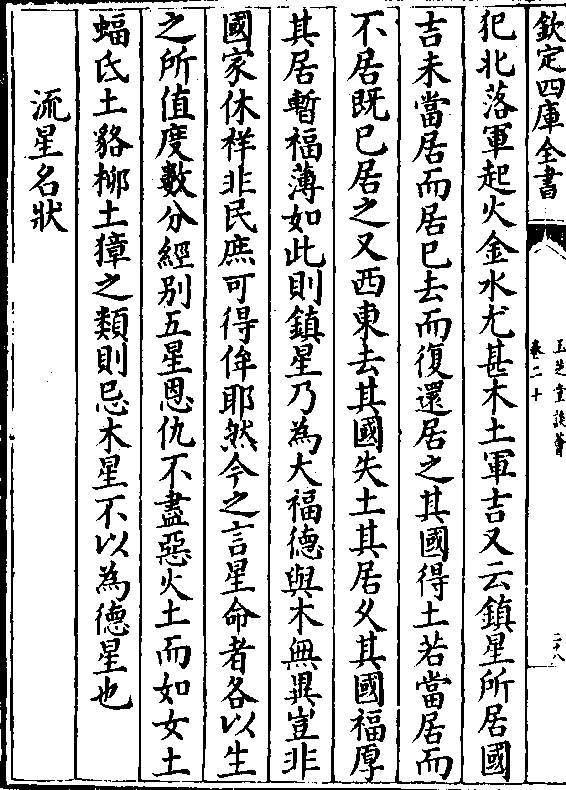 欽定四庫全書
玉芝堂談薈
卷二十
二十八
犯北落軍起火金水尤甚木土軍吉又云鎮星所居國
吉未當居而居已去而復還居之其國得土若當居而
不居既已居之又西東去其國失土其居久其國福厚
其居暫福薄如此則鎮星乃為大福德與木無異豈非
國家休祥非民庶可得侔耶然今之言星命者各以生
之所值度數分經别五星恩仇不盡惡火土而如女土
蝠氐土貉栁土獐之類則忌木星不以為德星也
流星名狀